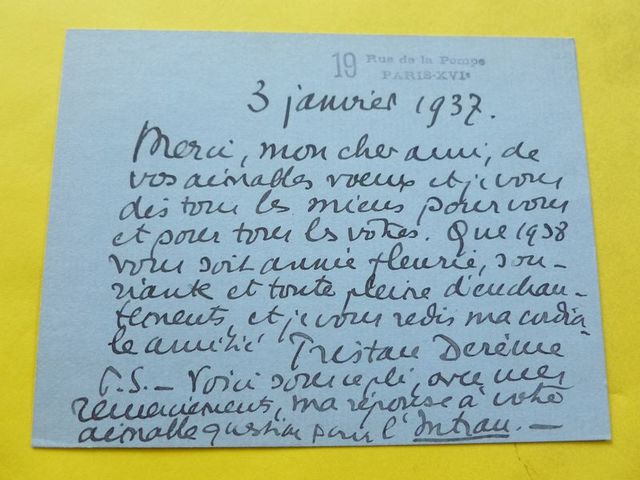 19 Rue de la Pompe
PARIS-XVIe
3 janvier 1937.
Merci, mon cher ami, de
vos aimables vœux et je vous
dis tous les miens pour vous
et pour tous les vôtres. Que 1938
vous soit année fleurie, sou-
riante et toute pleine d'enchan-
tements, et je vous redis ma cordia-
le amitié Tristan Derème
P.S. — Voici sous ce pli, avec mes
remerciements, ma réponse à votre
aimable question pour l'Intran. —